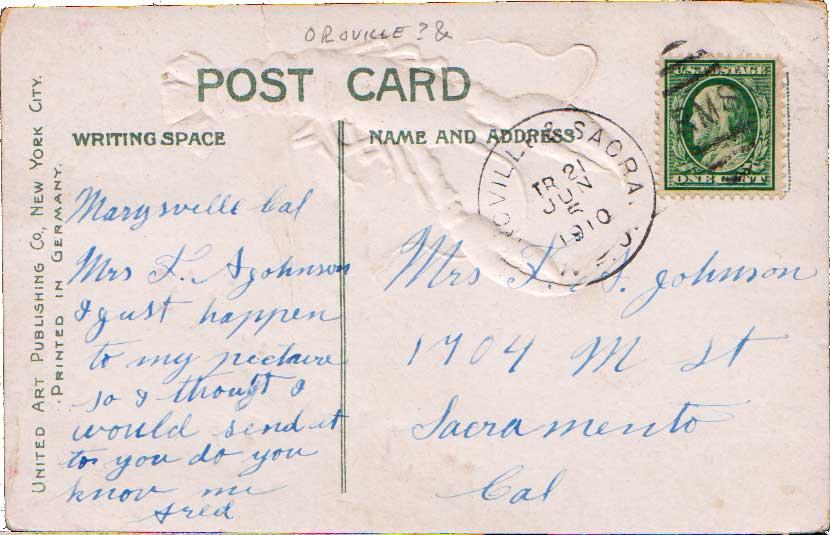 OROVILLE? &
POST CARD
WRITING SPACE
NAME AND ADDRESS
UNITED ART PUBLISHING CO, NEW YORK CITY.
PRINTED IN GERMANY.
U.S. POSTAGE
ONE CENT
RMS
OROVILLE & SACRA.
TR 21
JUN
5
1910
Marysville Cal
Mrs F. A Johnson
I just happen
to my picture
so I thought I
would send it
to you do you
know me
Fred
Mrs F. A. Johnson
1704 M St
Sacramento
Cal